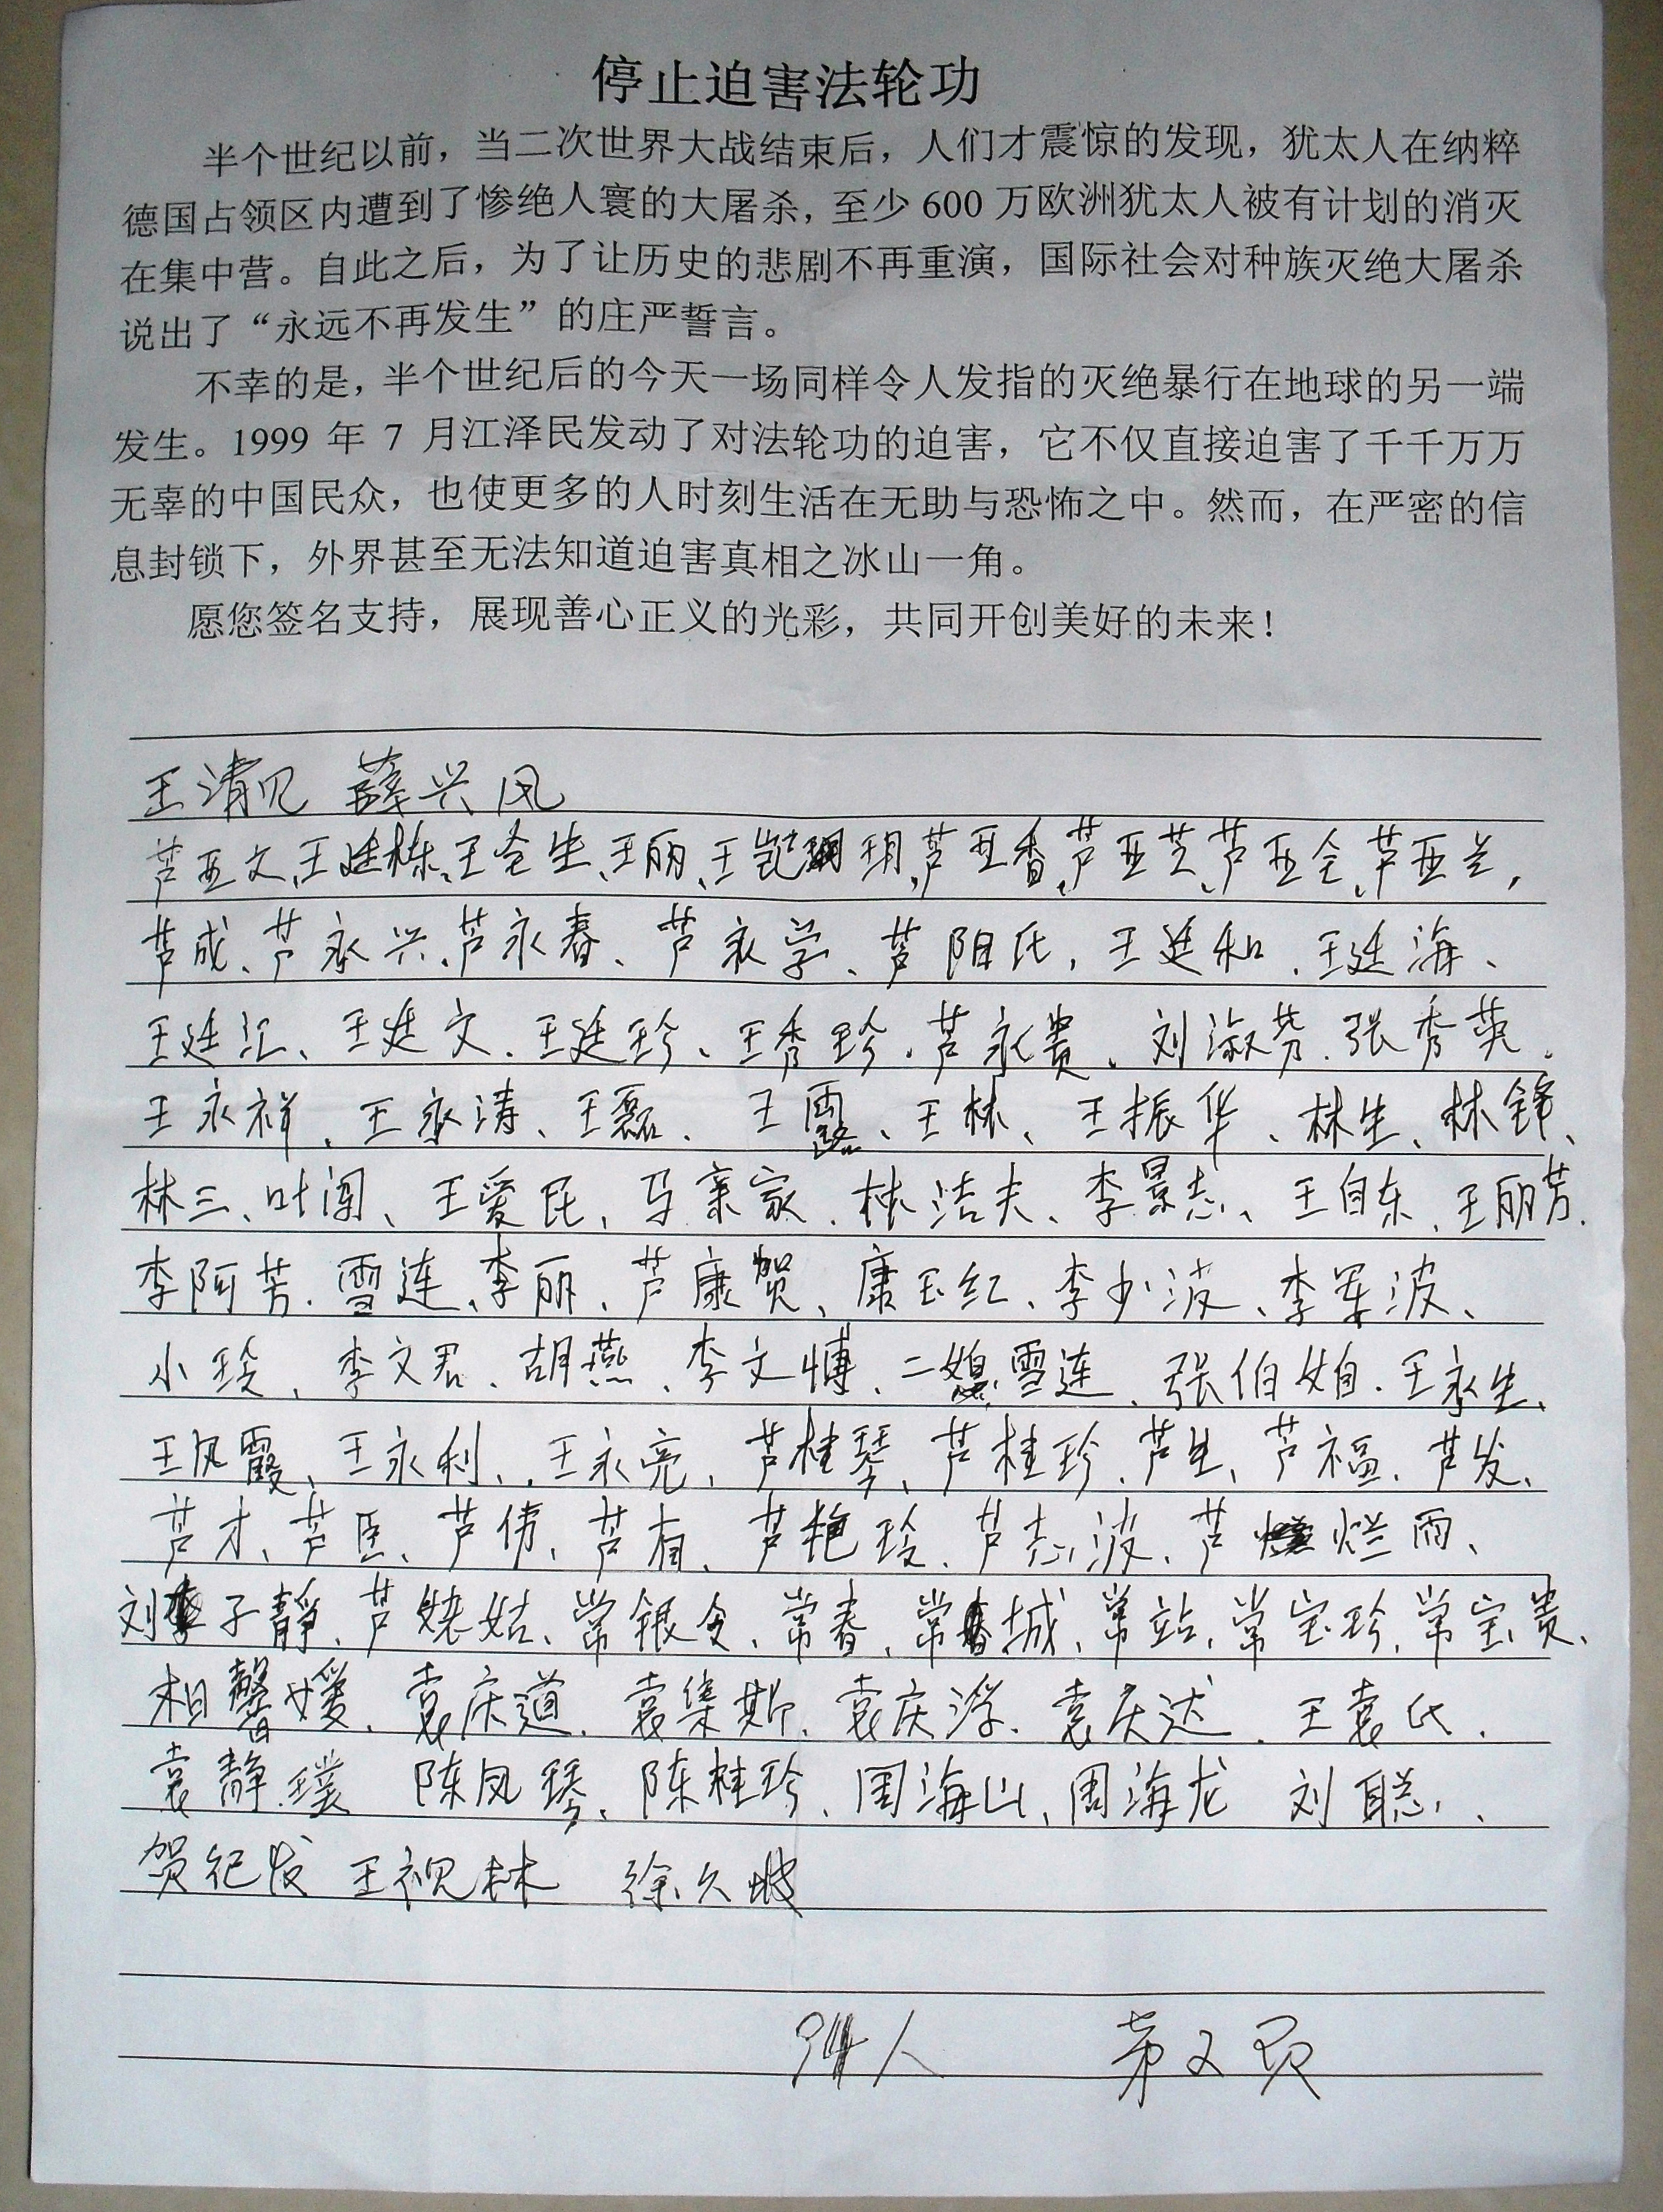 停止迫害法轮功
半个世纪以前，当二次世界大战结束后，人们才震惊的发现，犹太人在纳粹
德国占领区内遭到了惨绝人寰的大屠杀，至少 600 万欧洲犹太人被有计划的消灭
在集中营。自此之后，为了让历史的悲剧不再重演，国际社会对种族灭绝大屠杀
说出了“永远不再发生”的庄严誓言。
不幸的是，半个世纪后的今天一场同样令人发指的灭绝暴行在地球的另一端
发生。1999 年 7 月江泽民发动了对法轮功的迫害，它不仅直接迫害了千千万万
无辜的中国民众，也使更多的人时刻生活在无助与恐怖之中。然而，在严密的信
息封锁下，外界甚至无法知道迫害真相之冰山一角。
愿您签名支持，展现善心正义的光彩，共同开创美好的未来！
王清见 薛兴凤
芦亚文、王廷栋、王丽、芦亚香、芦亚芝、芦亚兰，
芦成、芦永兴、芦永春、芦永学、芦阳氏，王廷和、王廷海、
王廷汇、王廷文、王廷珍、王秀珍、芦永贵、刘淑芬、张秀英、
王永祥、王永涛、王磊、王露、王林、王振华、林生、林锋、
林三、叶闯、王爱民、马亲家、林洁夫、李景志、王自东、王丽芳、
李阿芳、雪连、李丽、芦康贺、康玉红、李少波、李军波、
小玲、李文君、胡燕、李文博、二媳雪连、张伯娘、王永生、
王凤霞、王永利、王永亮、芦桂琴、芦桂珍、芦生、芦福、芦发、
芦才、芦臣、芦伟、芦有、芦艳玲、芦志波、芦烂雨、
刘子静、芦姥姑、常银仓、常春、常城、常站、常宝珍、常宝贵、
相馨媛、袁庆道、袁集斯、袁庆浮、袁庆达、王袁氏、
袁静璞 陈凤琴、陈桂珍、周海山、周海龙 刘聪、
贺纪发 王视林 徐久
94人 第2页